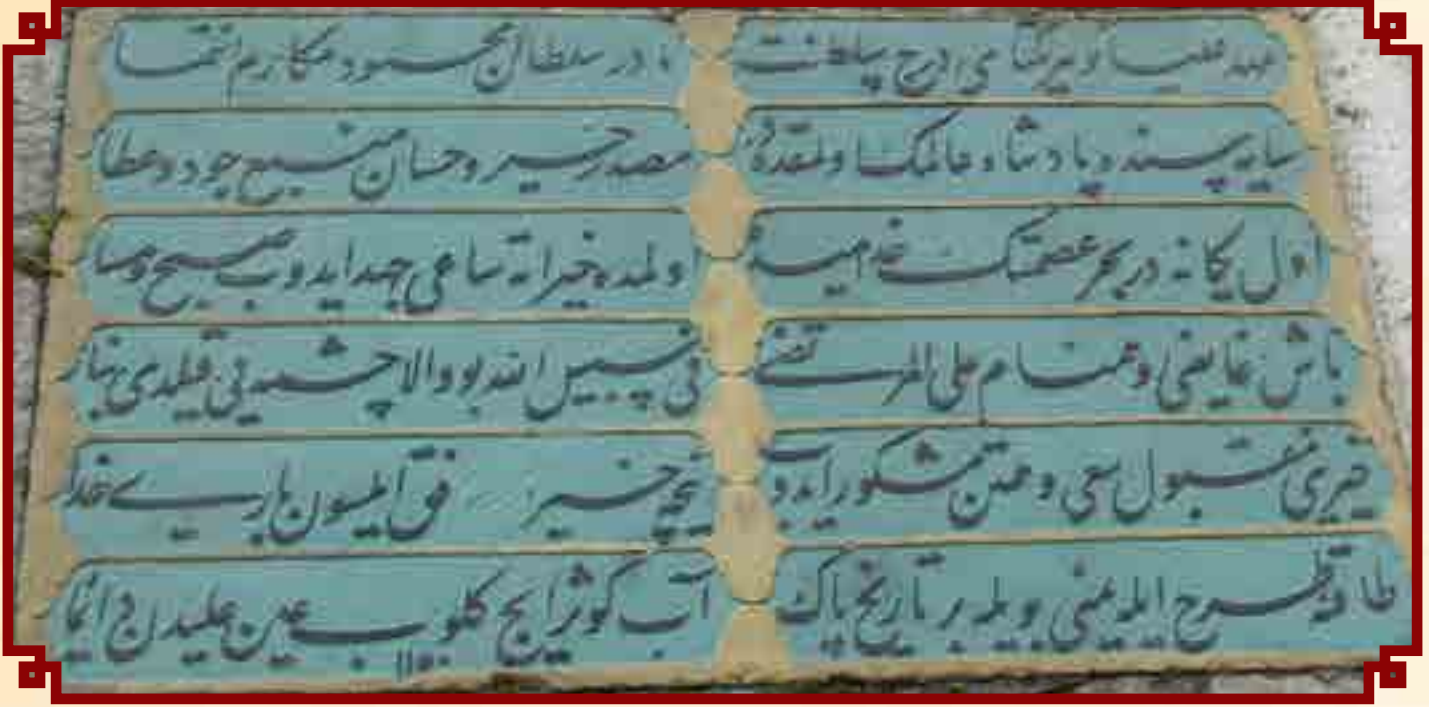 مهد علیا در یکتای درج سلطنت مادر سلطان محمود مکارم انتما
سایه سنده پادشاه عالمک اولمقده مصدر خیر و حسان منبع جود و عطا
اول یکانه در بحر عصمتک اولمده خیراته ساعی جهد ایدوب صبح و مسا
باش و همنام علی المرتضی فی سبیل الله بو والا چشمه نی قیلدی بنا
خیری مقبول سعی و همتن مشکور ایدوب نیجه خیره ایلسون باری خدا
طرح بویله بر تاریخ پاک آب کوثر ایچ کلوب عین علیدن دائما